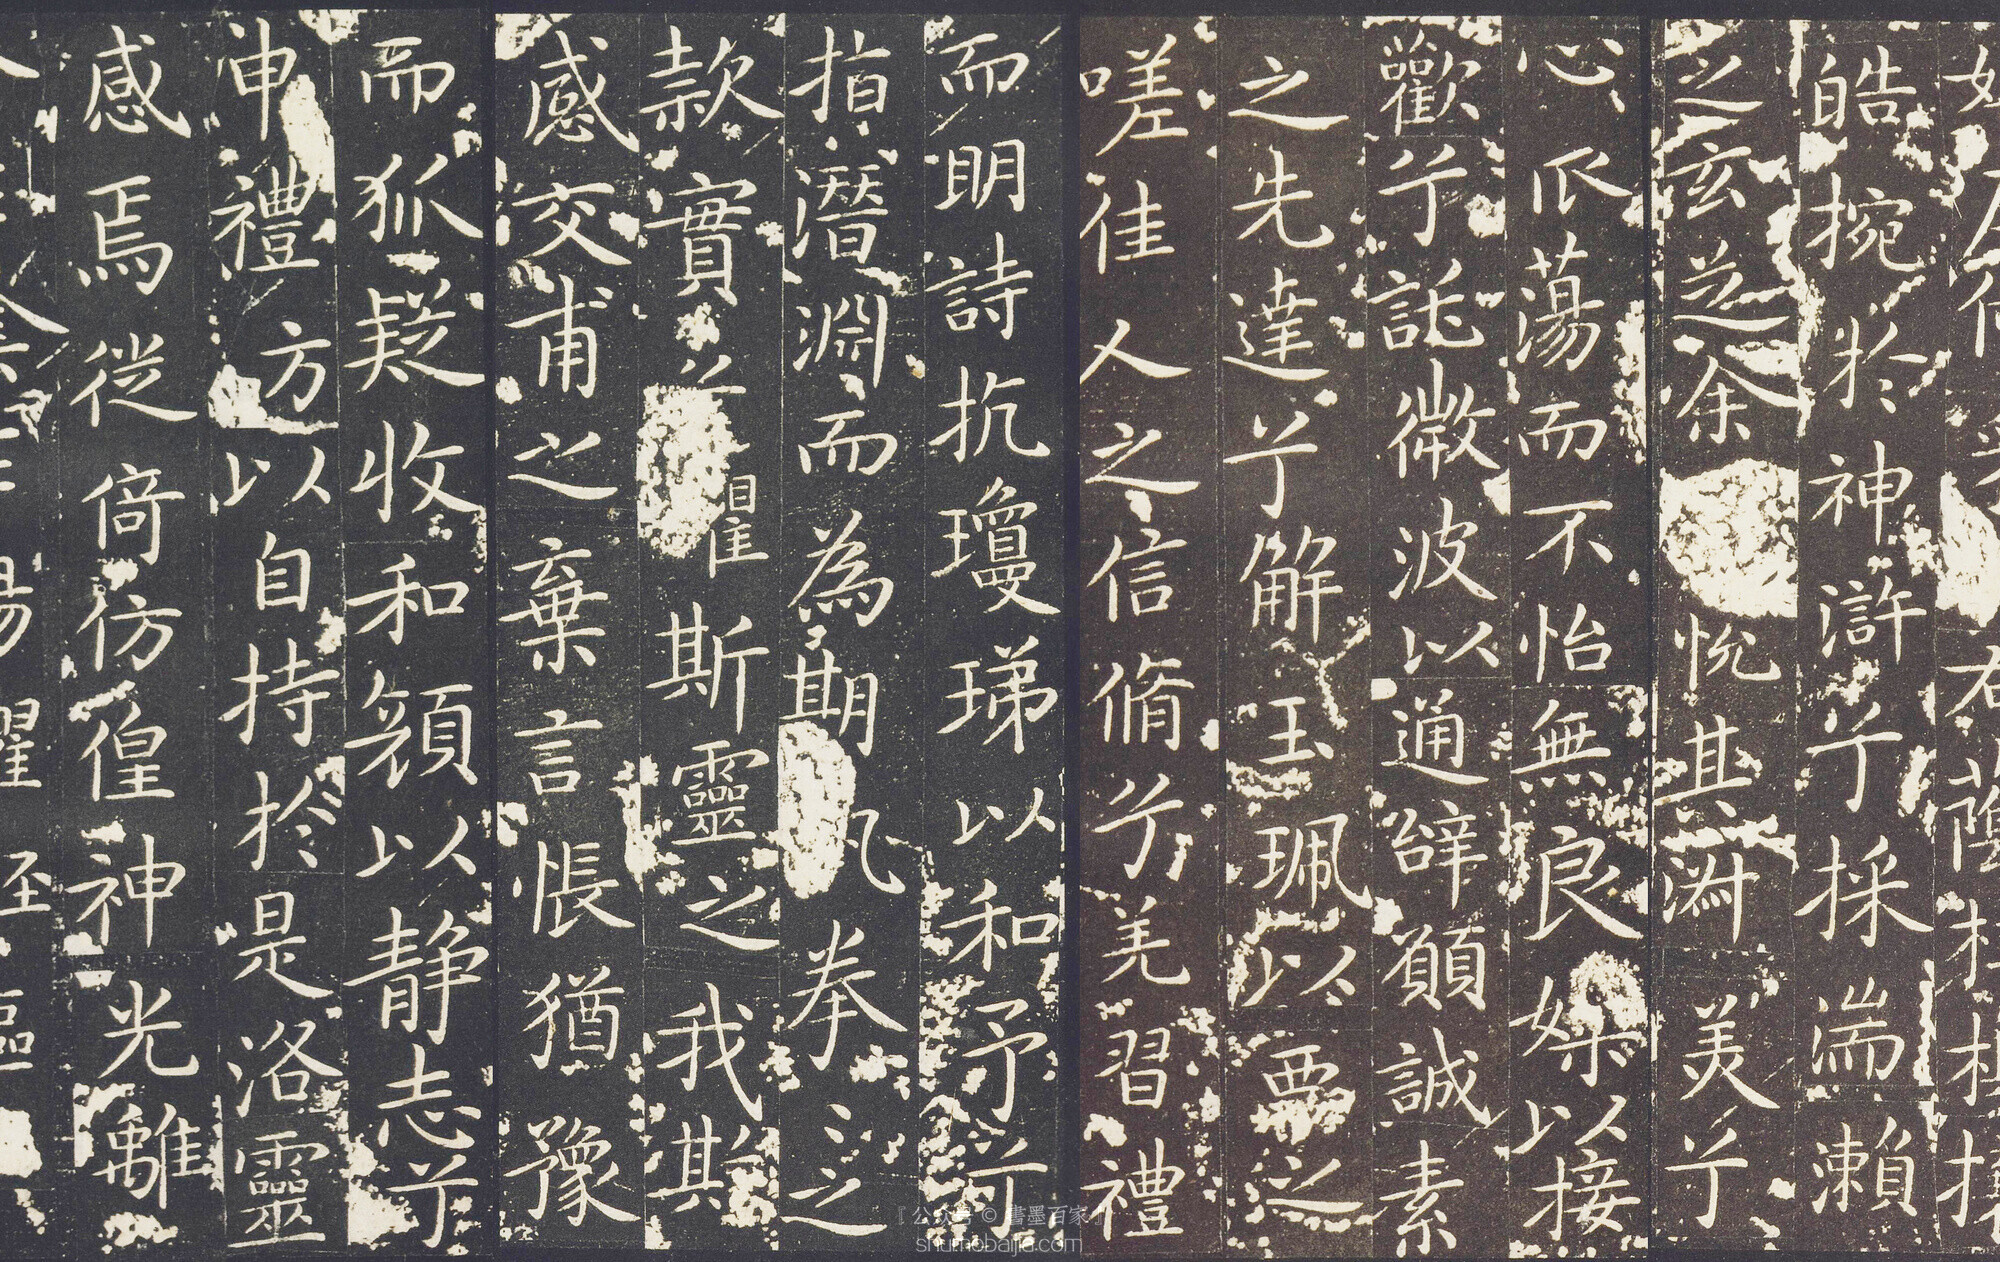 左倚采右蔭桂旗攘
皓捥於神滸兮採湍瀨
之玄芝余悅其淵美兮
心爪蕩而不怡無良媒以接
歡兮託微波以通辭願誠素
之先達兮解玉珮以要之
嗟佳人之信脩兮羌習禮
而明詩抗瓊珶以和予兮
指潛淵而為期拳之
款實兮斯靈之我期
感交甫之棄言悵猶豫
而狐疑收和顏以靜志兮
申禮方以自持於是洛靈
感焉徙倚彷徨神光離